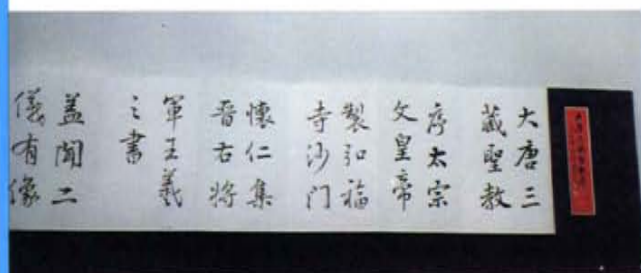 大唐三
藏聖教
序太宗
文皇帝
製弘福
寺沙门
懷仁集
晉右将
軍王羲
之書
盖聞二
儀有像